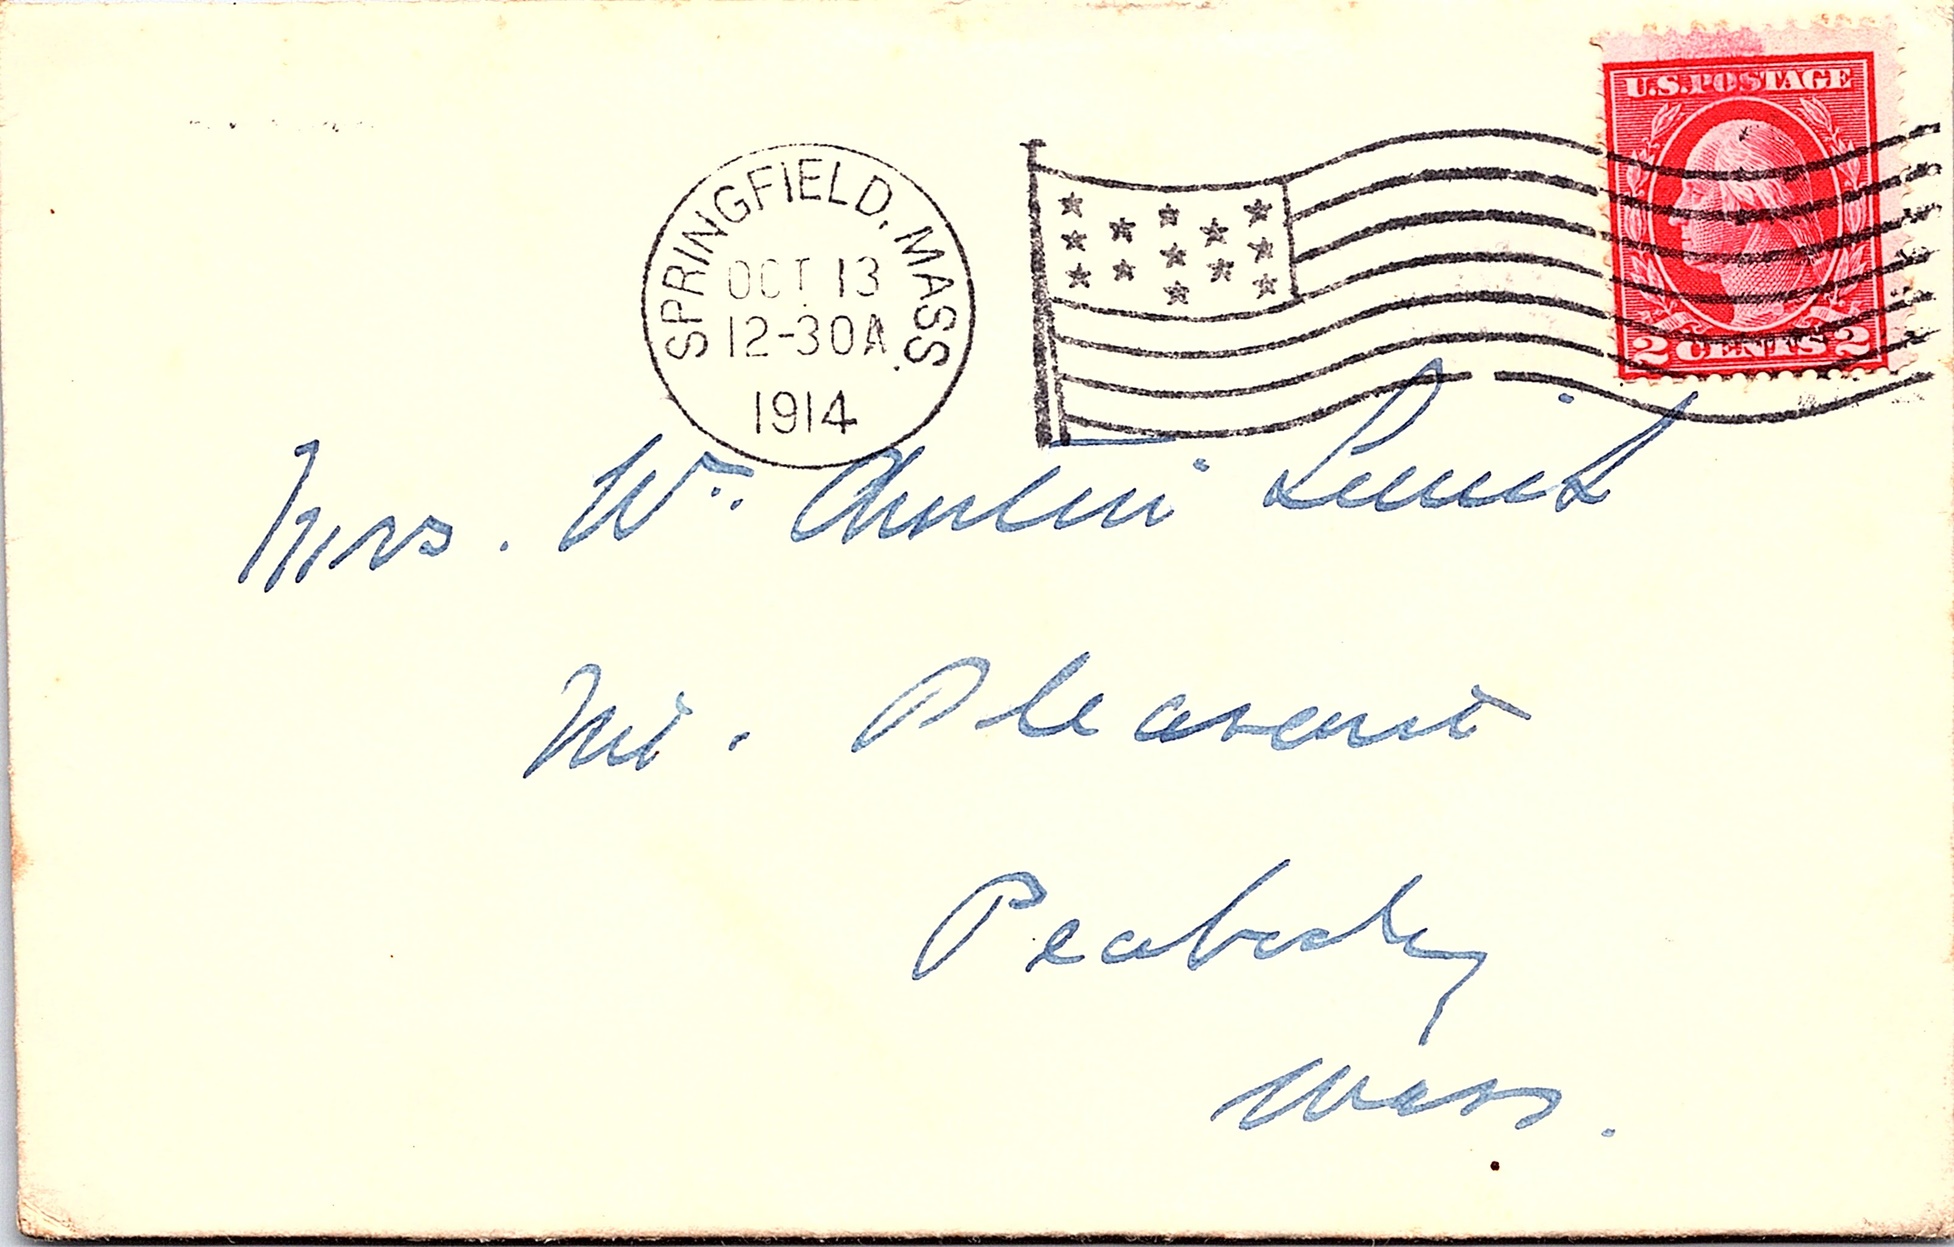 U.S. POSTAGE
2 CENTS 2
SPRINGFIELD, MASS.
OCT 13
12-30A
1914
Mrs. Wm. Austin
Mt. Pleasant
Peabody
Mass.